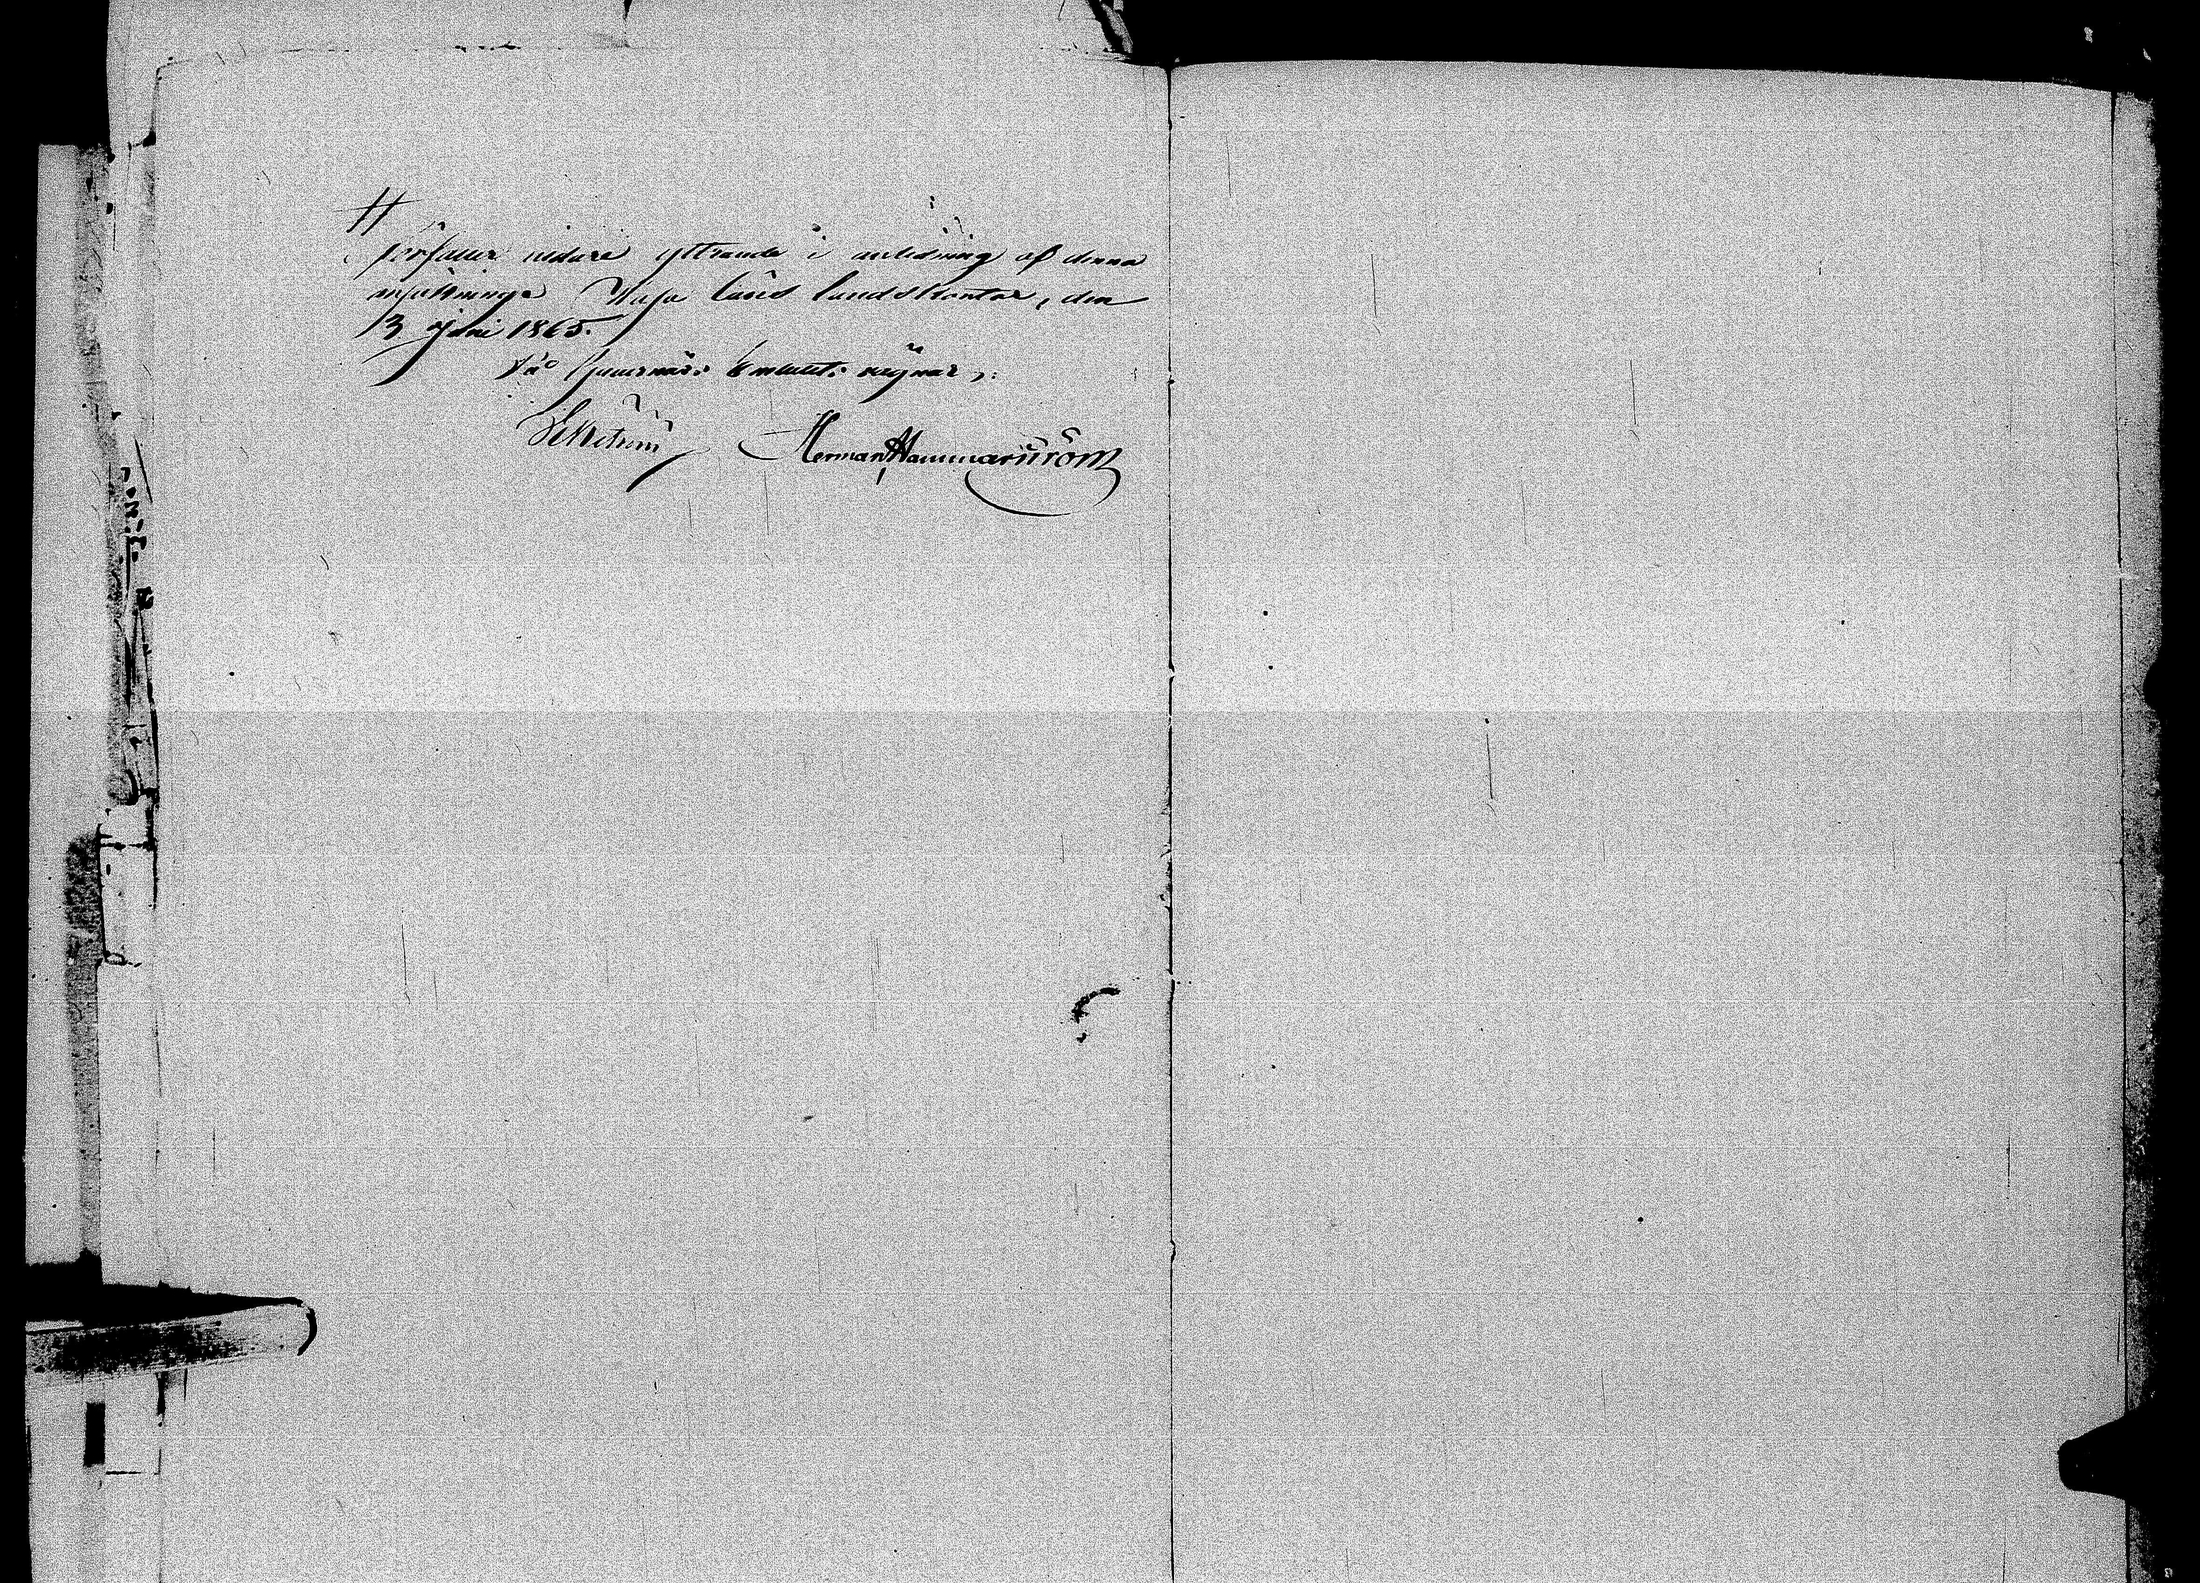 förfaller vidare yttrande i anledning af denna
anfäktninge Wasa läns landskontor, den
13 Juni 1865.
På Guvernörs Embetets vägnar:
Herman Hammarström